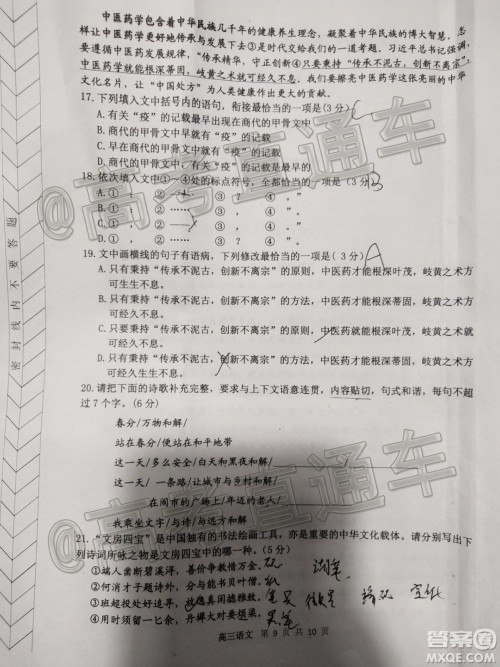 中医药学包含着中华民族几千年的健康养生理念，凝聚着中华民族的博大智慧。怎
样让中医药学更好地传承与发展下去③是时代交给我们的一道考题。习近平总书记强调，
要遵循中医药发展规律，"传承精华，守正创新④只要秉持"传承不泥古，创新不离宗"，
中医药学就能根深蒂固，岐黄之术就可经久不息。我们要擦亮中医药学这张亮丽的中华
文化名片，让"中国处方"为人类健康作出更大的贡献。
17.下列填入文中括号内的语句，衔接最恰当的一项是(3分)
A.有关"疫"的记载最早出现在商代的甲骨文中
B.商代的甲骨文中就有"疫"的记载
C.商代的甲骨文中就有"疫"的记载
D.商代的甲骨文中，有关"疫"的记载是最早的
18.依次填入文中①～④处的标点符号，全都恰当的一项是(3分) B
A.①
B.①
C.①
D.①
19.文中画横线的句子有语病，下列修改最恰当的一项是(3分) A
A.只有秉持"传承不泥古，创新不离宗"的原则，中医药才能根深叶茂，岐黄之术方
可生生不息。
B.只有秉持"传承不泥古，创新不离宗"的方法，中医药才能根深蒂固，岐黄之术才
可经久不息。
C.只要秉持"传承不泥古，创新不离宗"的原则，中医药就能根深叶茂，岐黄之术就
可经久不息。
D.只要秉持"传承不泥古，创新不离宗"的方法，中医药学就能根深蒂固，岐黄之术
就可生生不息。
20.请把下面的诗歌补充完整，要求与上下文语意连贯，内容贴切，句式和谐，每句不超
过7个字。(6分)
春分/万物和解/
站在春分/便站在和平地带
这一天/多么安全/白天和黑夜和解/
这一天/一条路/让城市与乡村和解/
在闹市的广场上/年迈的老人/
我乘坐文字/与诗/与远方和解
21."文房四宝"是中国独有的书法绘画工具，亦是重要的中华文化载体。请分别写出下
列诗词所咏之物是文房四宝中的哪一种。(5分)
①端人凿断碧溪浔，善价争教惜万金。砚
②何消才子题诗外，分与能书贝叶僧。
③班超投处残阳暮，
④时时须留一匕余，丹婵大对要烟染。
高三语文 第9页 共10页
密封线内不要答题
@高考直通车
@高考直通车
@高考直通车
作业帮